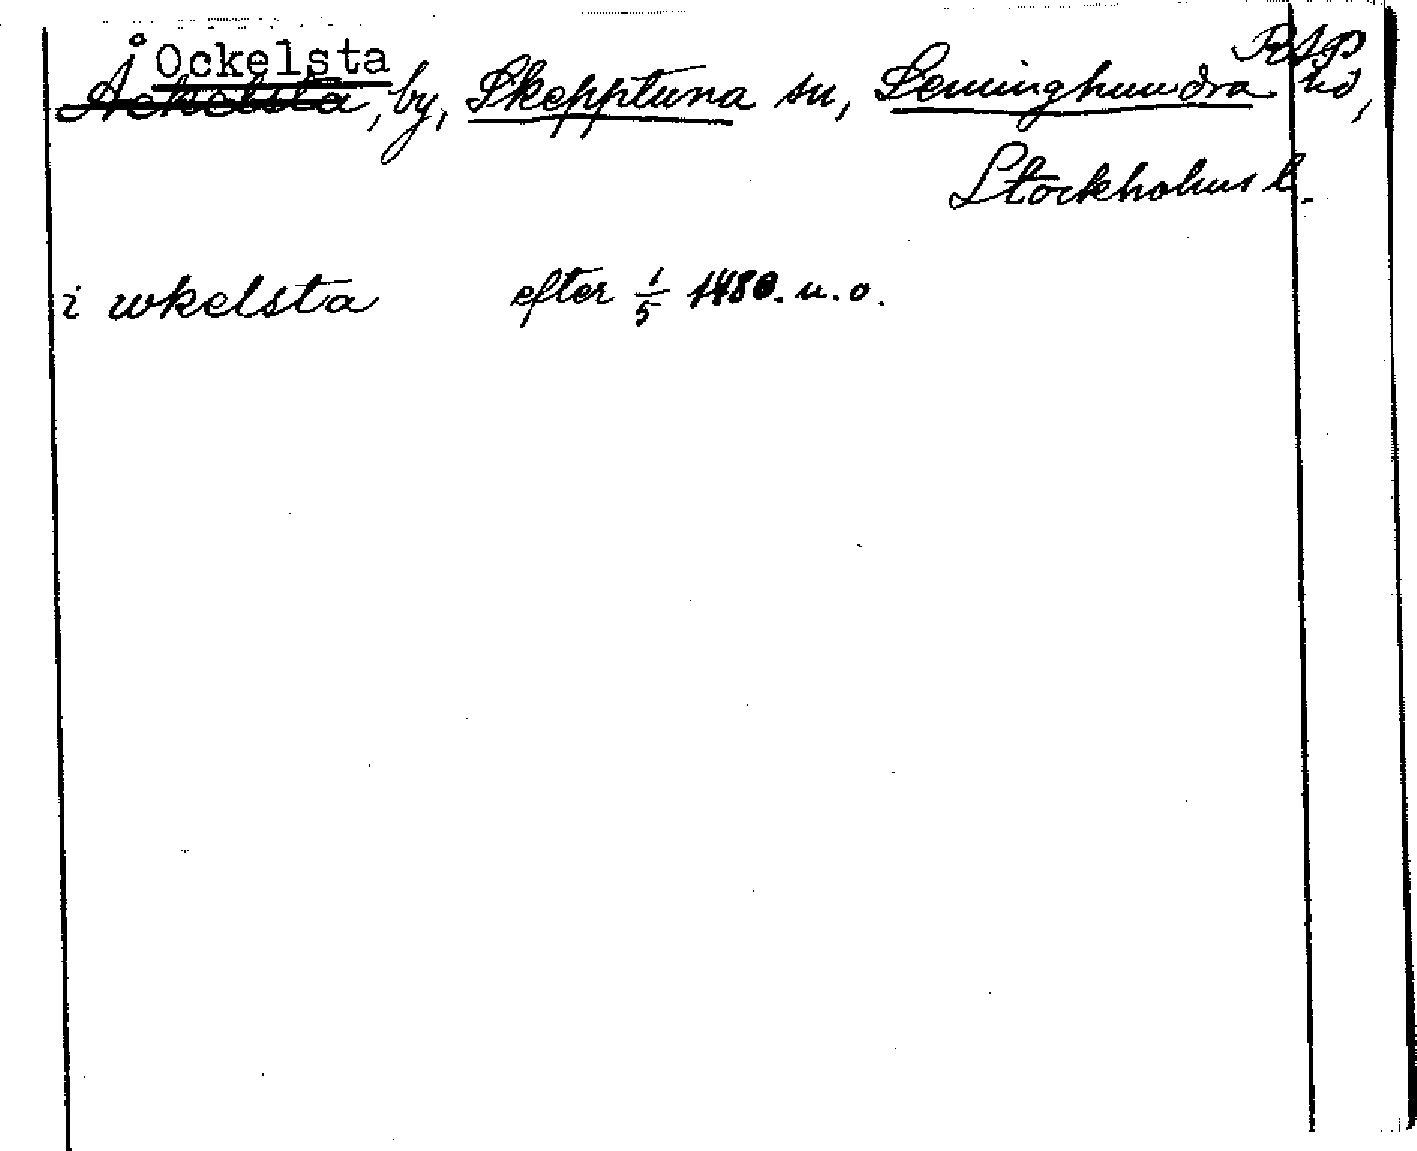 RAP
Ockelsta
Åckelsta, by, Skepptuna sn, Seminghundra hd,
Stockholms l.
i wkelsta efter 1/5 1480. u. o.